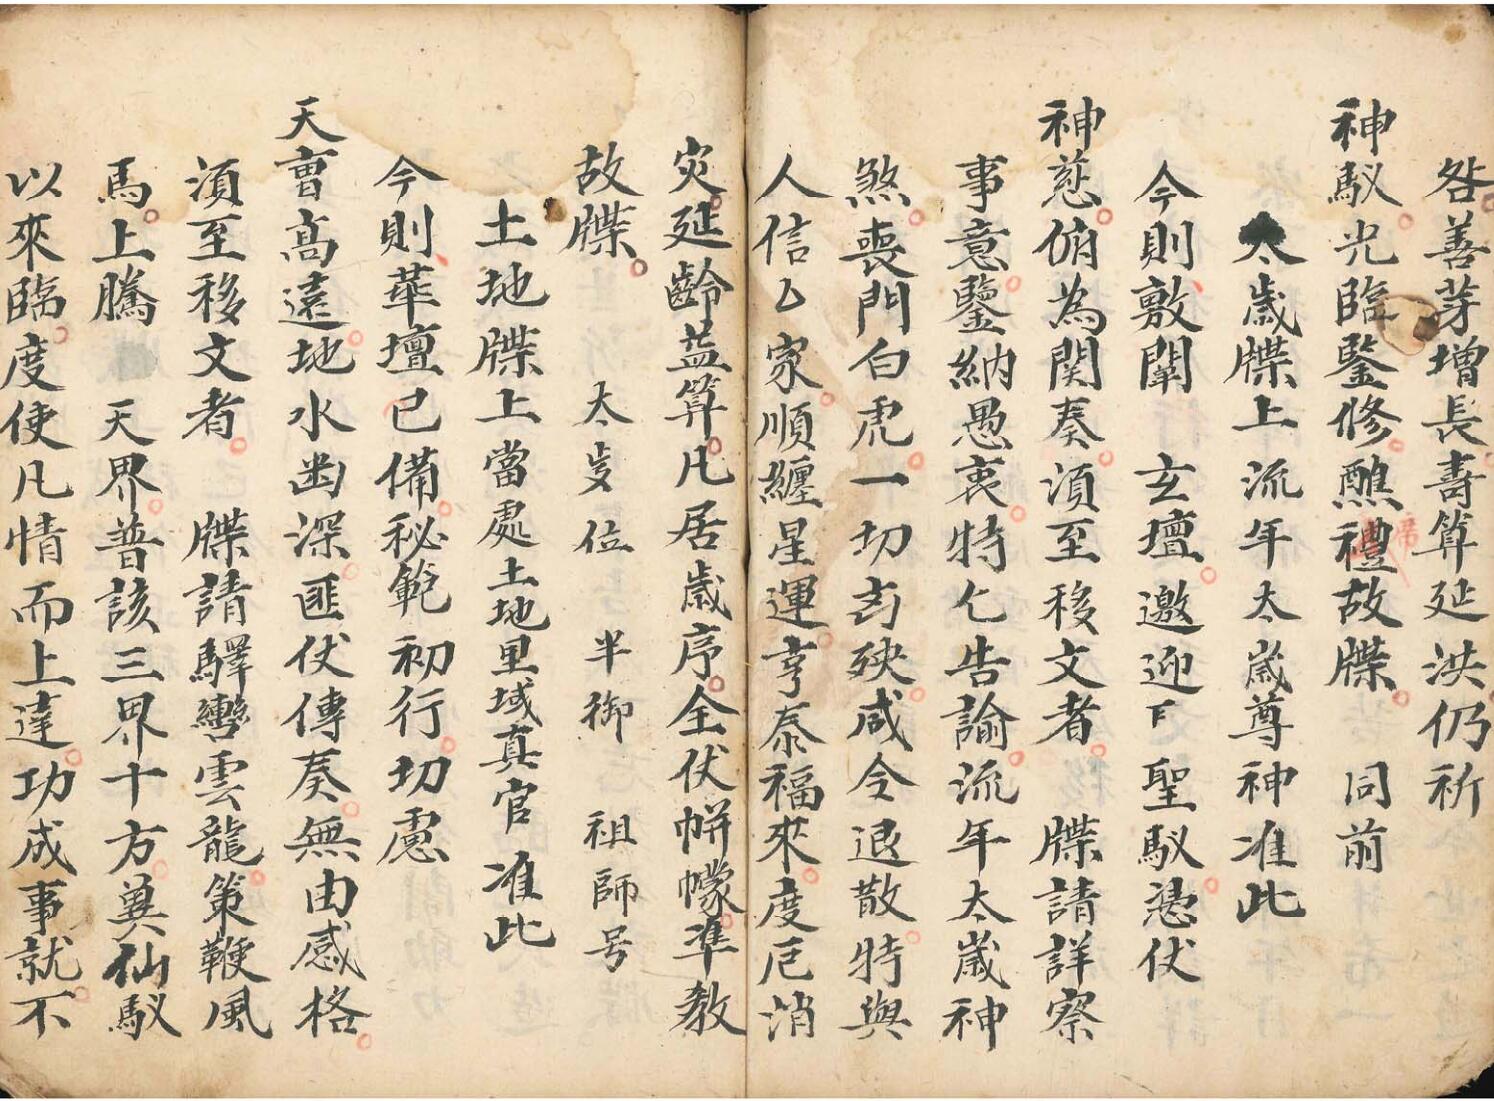 咎善芽增長壽算延洪仍祈
神馭光臨鑒修醮禮故牒 同前
席
太歲牒上流年太歲尊神准此
今則敷闡 玄壇邀迎下聖馭憑伏
神慈俯為関奏須至移文者 牒請詳察
事意鑒納愚衷特乞告諭流年太歲神
煞喪門白虎一切刃殃咸令退散特與
人信乙家順纏星運亨泰福來度厄消
灾延齡益算凡居歲序全伏帡幪準教
故牒 太歲位 半御 祖師号
土地牒上當處土地里域真官准此
今則華壇已備秘範初行切慮
天曹高遠地水幽深匪伏傳奏無由感格
須至移文者 牒請驛轡雲龍策鞭風
馬上騰 天界普該三界十方冀仙馭
以來臨度使凡情而上達功成事就不